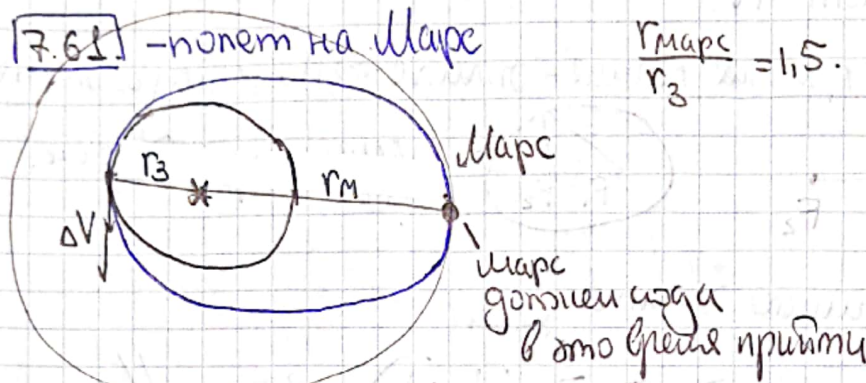 7.61 - полет на Марс
rмарс / rз = 1,5.
Марс
rз
rм
ΔV
Марс
должен сюда
в это время прийти